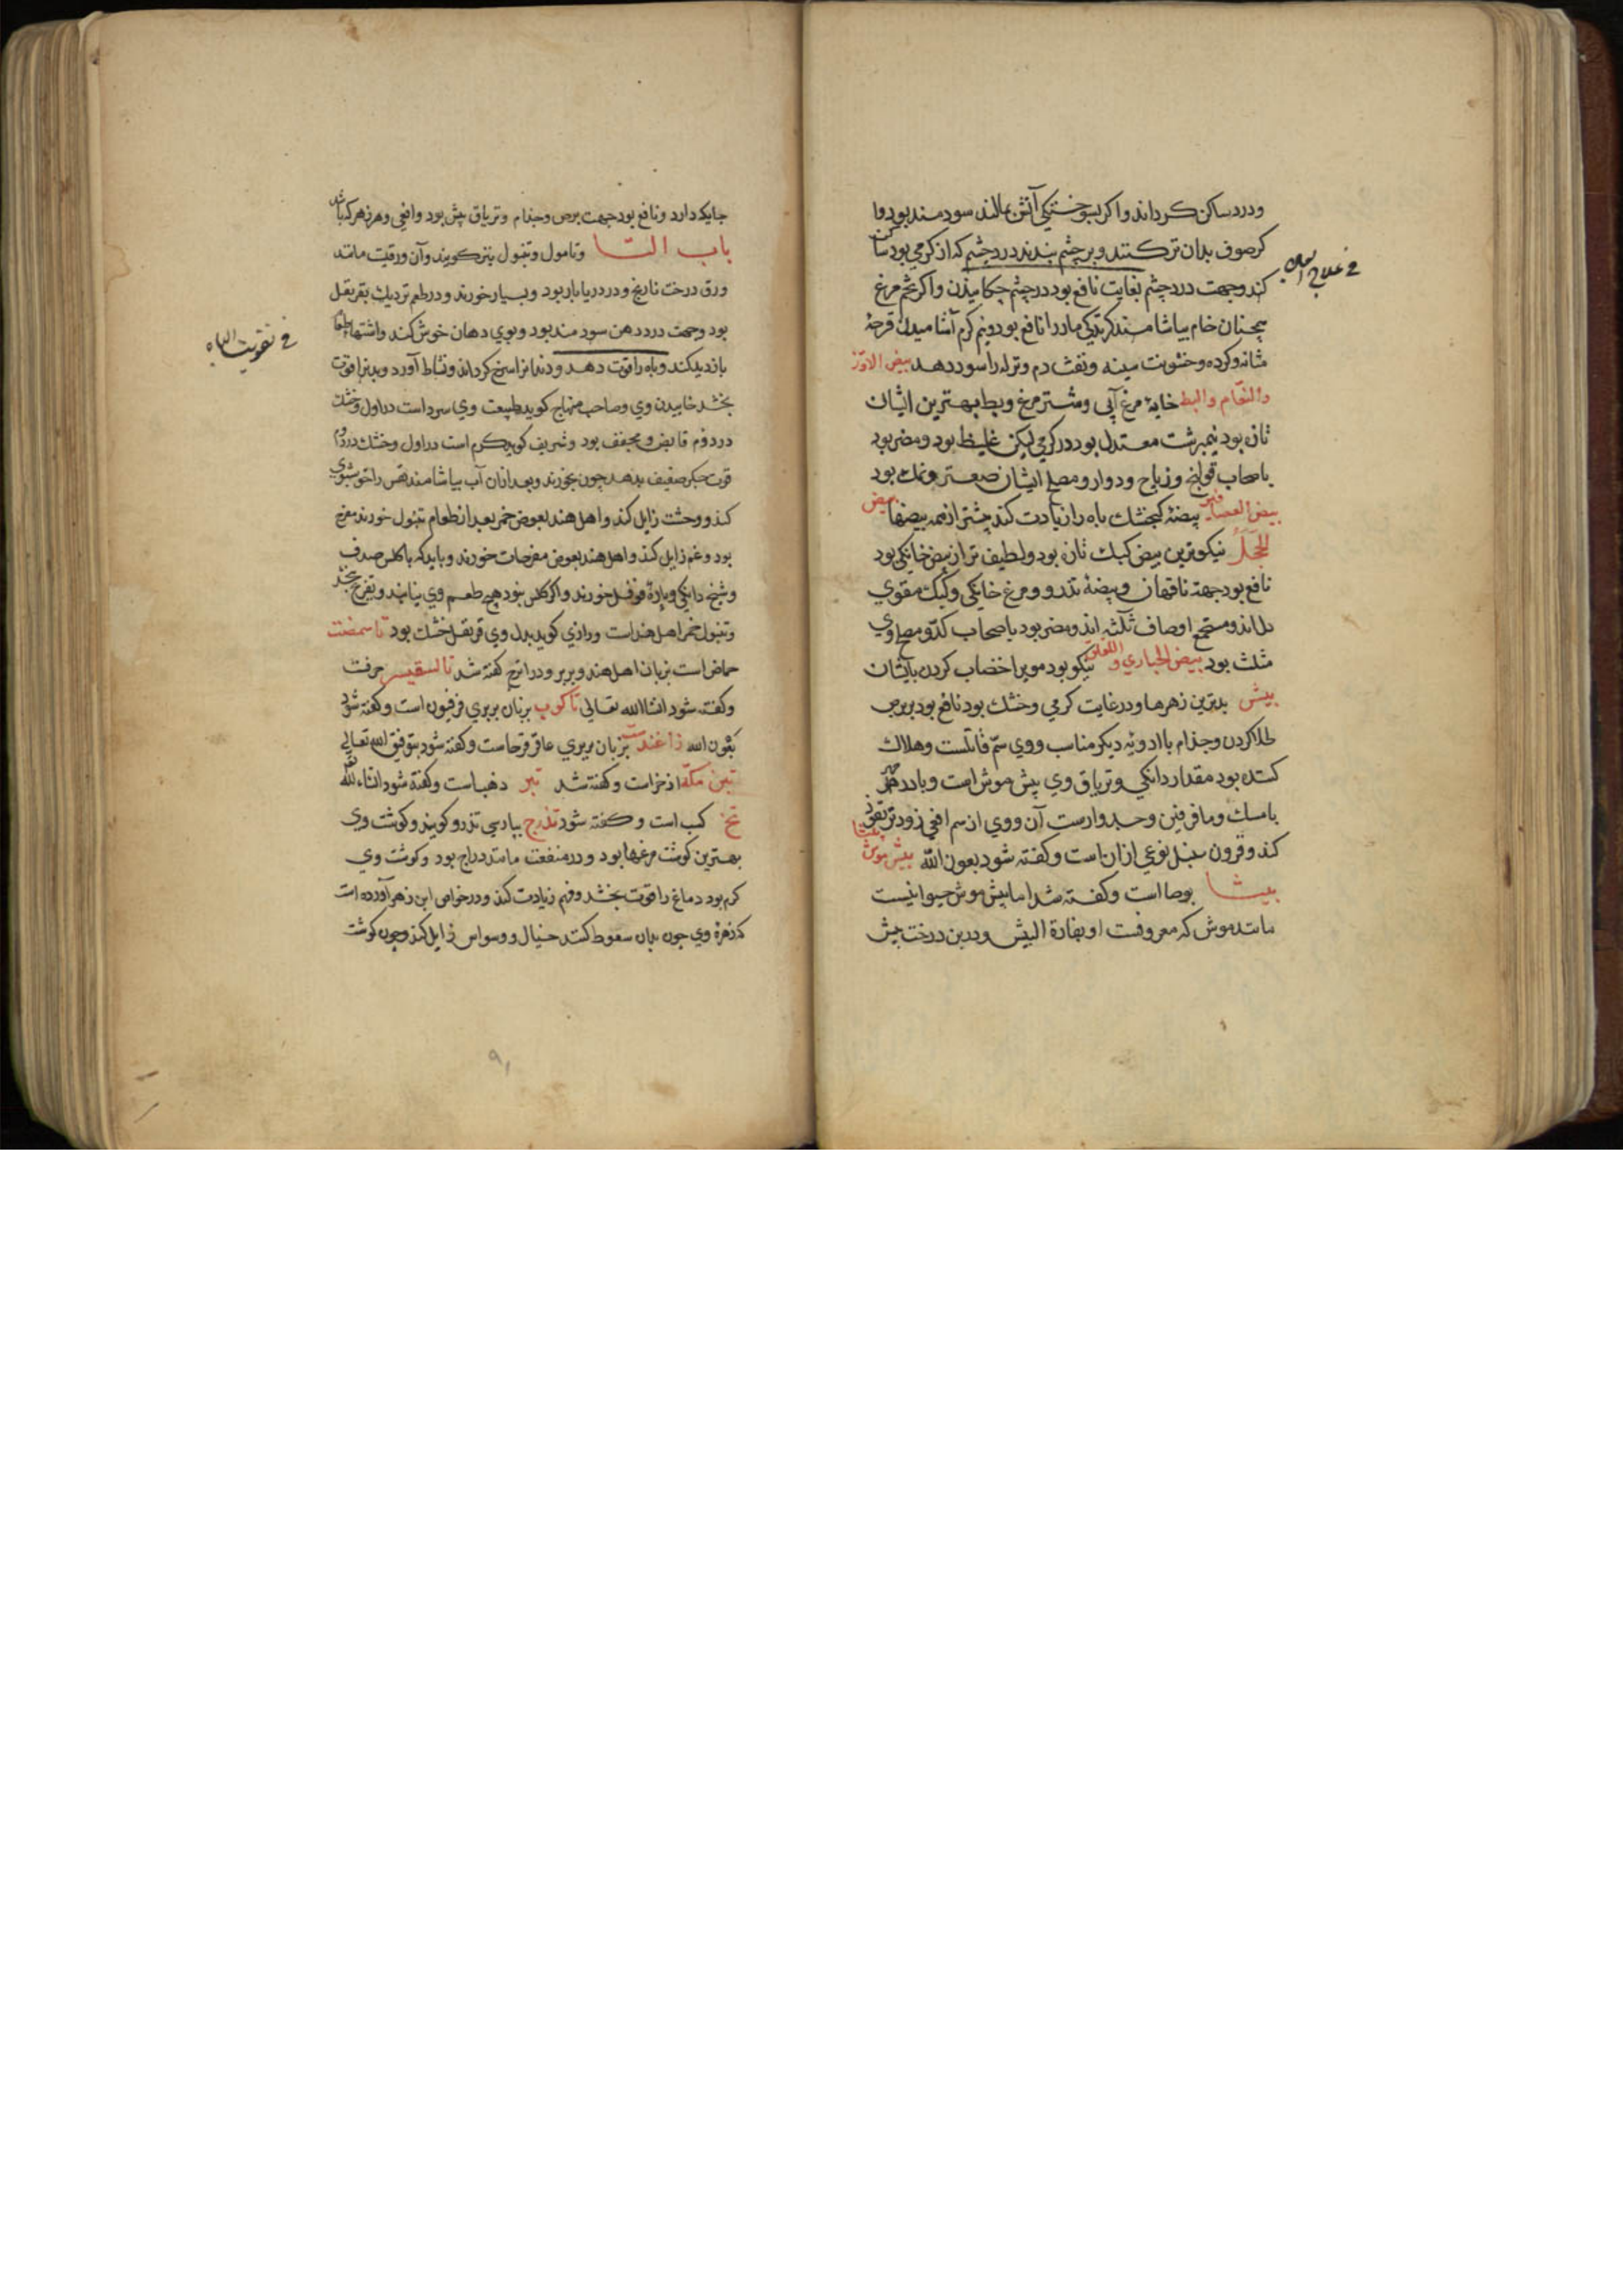 و درد ساکن کرداند و اکر بسوختکی آتش بمالند سودمند بود و ا
کر صوف بدان تر کنند و بر چشم بندند درد چشم که از کرمی بود ساکن
کند و جهت درد چشم بغایت نافع بود در چشم چکانیدن و اکر تخم مرغ
همچنان خام بیاشامند کزیدکی مار را نافع بود و نیم کرم آشامیدن قرحۀ
مثانه و کرده و خشونت سینه و نفث دم و نزله را سود دهد بیض الاوز
والنعام والبط خایۀ مرغ آبی و شتر مرغ و بط بهترین ایشان
تازه بود نیمبرشت معتدل بود در کرمی لیکن غلیظ بود و مضر بود
باصحاب قولنج و ریاح و دوار و مصلح ایشان صعتر و نمک بود
بیض العصافیر بیضۀ کنجشک باه را زیادت کند بیشتر از همه بیضها بیض
الحجل نیکوترین بیض کبک تازه بود و لطیف تر از بیض خانکی بود
نافع بود جهت ناقهان و بیضۀ تذرو و مرغ خانکی و کبک مقوی
دل اند و مستجمع اوصاف ثلثه اند و مضر بود باصحاب کد و مصلح وی
مثلث بود بیض الحباری و اللقلق نیکو بود موی را خضاب کردن بایشان
بیش بدترین زهرها و در غایت کرمی و خشک بود نافع بود بر برص
طلا کردن و جذام با ادویۀ دیکر مناسب و وی سم قاتلست و هلاک
کننده بود مقدار دانکی و تریاق وی بیش موش است و بادزهر
بامسک و مافرفین و جدوارست آن و وی از سم افعی زودتر نفوذ
کند و قرون سنبل نوعی از آن است و کفته شود بعون الله بیش موش بیشا
بیشا بوصا است و کفته شد اما بیش موش حیوانیست
مانند موش که معروفست او بفارة البیش و در بن درخت بیش
فی علاج
جایکه دارد و نافع بود جهت برص و جذام و تریاق بیش بود و افعی و هر زهر که باشد
باب التا و تامول و تنبول نیز کویند و آن ورقیست مانند
ورق درخت نارنج و در دریابار بود و بسیار خورند و در طعم نزدیک بقرنفل
بود و جهت درد دهن سودمند بود و بوی دهان خوش کند و اشتهاء طعام
بازدید کند و باه را قوت دهد و دندانرا سرخ کرداند و نشاط آورد و بدنرا قوت
بخشد خاییدن وی و صاحب منهاج کوید طبیعت وی سرد است در اول و خشک
در دوم قابض و مجفف بود و شریف کوید کرم است در اول و خشک در دوم
قوت جکر ضعیف بدهد چون بخورند و بعد از آن آب بیاشامند نفس را خوشبوی
کند و وحشت زایل کند و اهل هند بعوض خمر بعد از طعام تنبول خورند مفرح
بود و غم زایل کند و اهل هند بعوض مفرحات خورند و باید که با کلس صدف
و شبخه دانکی و پارۀ فوفل خورند و اکر کلس نبود هیچ طعم وی نیابند و تفرح نبخشد
و تنبول خمر اهل هند است و رازی کوید بدل وی قرنفل خشک بود تاسمضت
حماض است بزبان اهل هند و بربر و در اترج کفته شد تالسقیس حرفست
و کفته شود انشاالله تعالی تاکوب بزبان بربری فرفیون است و کفته شود
بعون الله تاغندست بزبان بربری عاقرقرحاست و کفته شود بتوفیق الله تعالی
تبن مکه اذخر است و کفته شد تبر ذهب است و کفته شود انشاءالله
تخ کسب است و کفته شود تذرج بپارسی تذرو کویند و کوشت وی
بهترین کوشت مرغها بود و در منفعت مانند دراج بود و کوشت وی
کرم بود دماغ را قوت بخشد و فهم زیادت کند و در خواص ابن زهر آورده است
که زهرۀ وی چون بدان سعوط کنند خیال و وسواس زایل کند و چون کوشت
فی تقویت الباه
۹۱